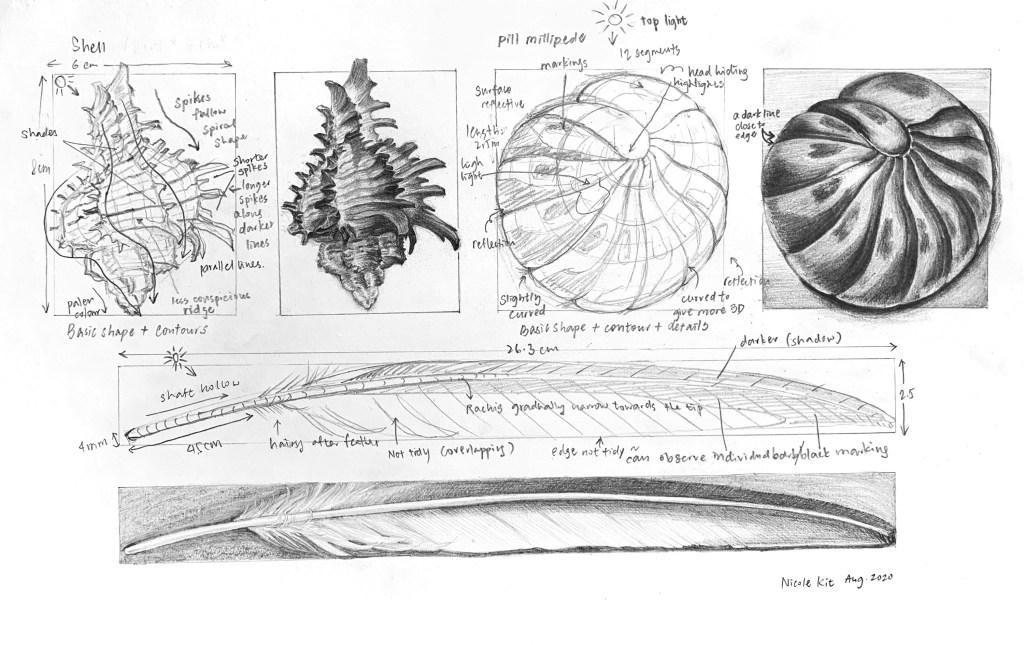 Shell
6 cm
shades
8cm
spikes
follow
spiral
shape
shorter
spikes
longer
spikes
along
darker
lines
parallel lines.
paler
colour
less conspicious
ridge
Basic shape + contours
top light
pill millipede
12 segments
markings
head hiding
highlights
surface
reflective
length:
high
light
reflection
slightly
curved
curved to
give more 3D
reflection
Basic shape + contour + details
a dark line
close to
edges
26.3 cm
darker (shadow)
shaft hollow
Rachis gradually narrow towards the tip
2.5
4mm
45cm
hairy after feather
Not tidy (overlapping)
edge not tidy
can observe individual barb/black marking
Nicole Kit Aug. 2020